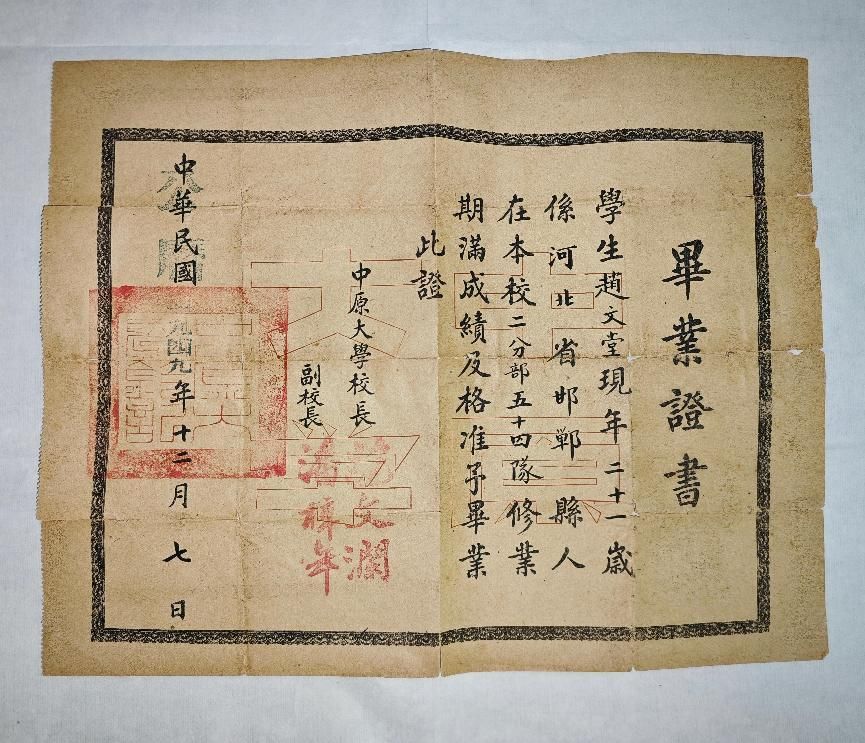 畢業證書
學生趙文堂現年二十一歲
係河北省邯鄲縣人
在本校二分部五十四隊修業
期滿成績及格准予畢業
此證
中原大學校長
范文瀾
副校長
潘梓年
中華民國
公曆
一九四九年十二月七日